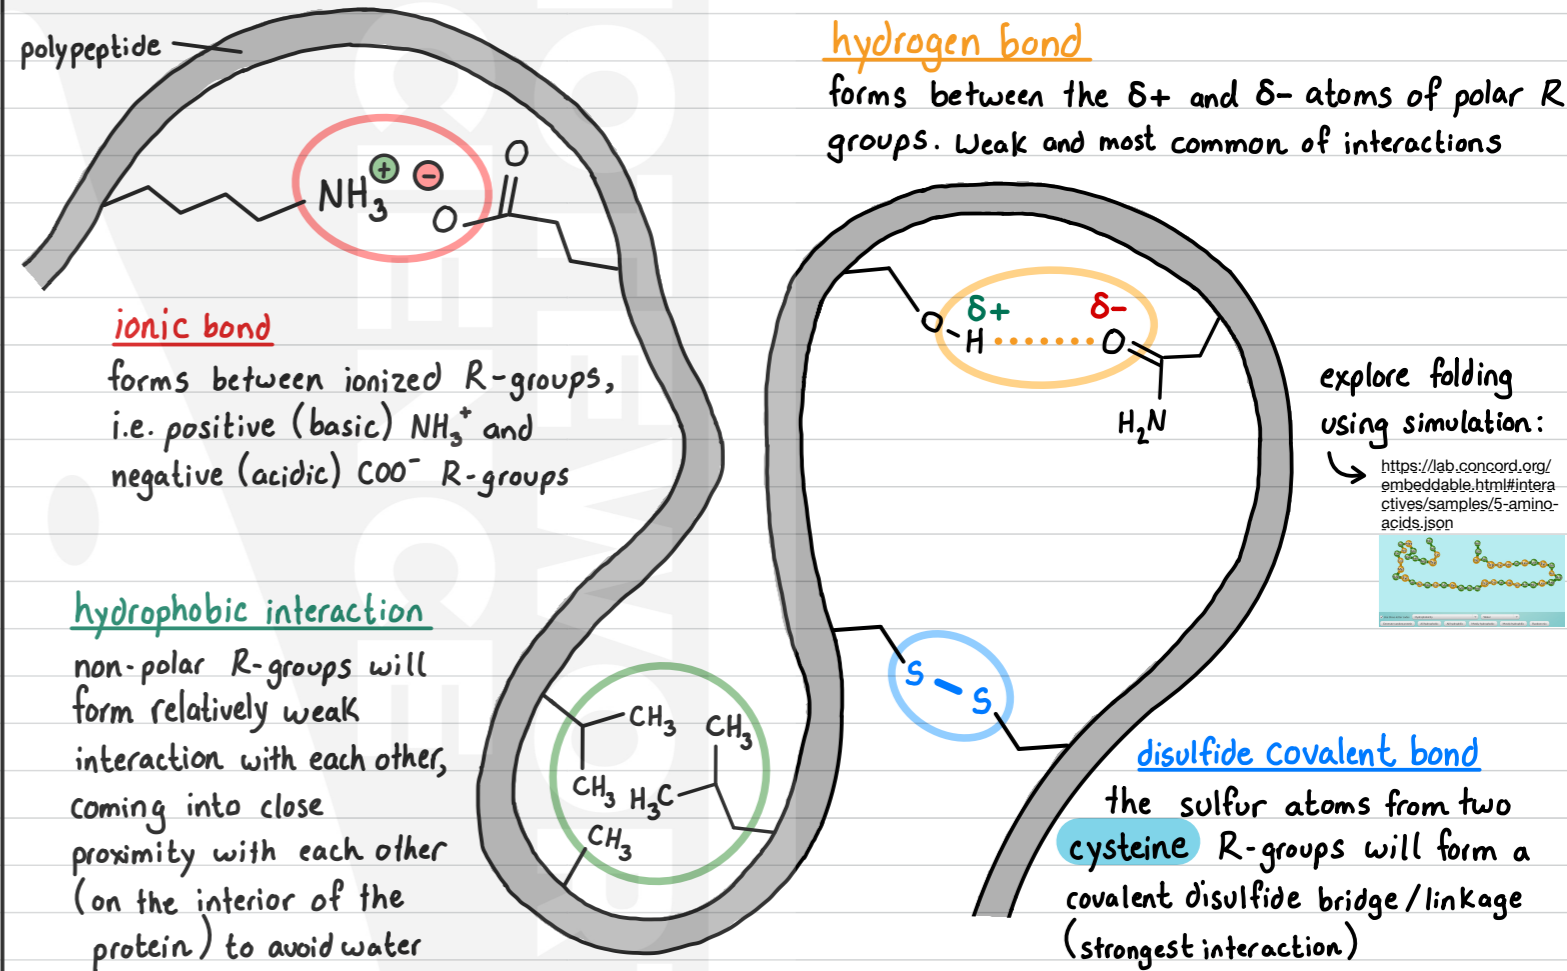 polypeptide
NH₃
+
−
O
O
ionic bond
forms between ionized R-groups,
i.e. positive (basic) NH₃⁺ and
negative (acidic) COO⁻ R-groups
hydrophobic interaction
non-polar R-groups will
form relatively weak
interaction with each other,
coming into close
proximity with each other
(on the interior of the
protein) to avoid water
CH₃
CH₃
CH₃
H₃C
CH₃
hydrogen bond
forms between the δ+ and δ- atoms of polar R
groups. Weak and most common of interactions
δ+
δ-
O
H
O
H₂N
explore folding
using simulation:
https://lab.concord.org/
embeddable.html#intera
ctives/samples/5-amino-
acids.json
S
S
disulfide covalent bond
the sulfur atoms from two
cysteine R-groups will form a
covalent disulfide bridge/linkage
(strongest interaction)